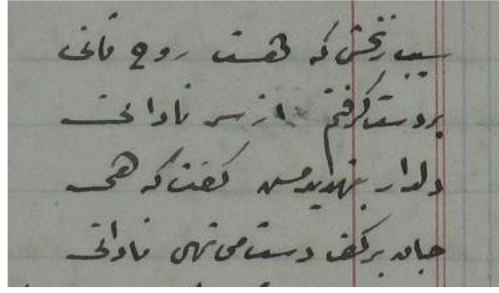 سیب زنخش که هست روح ثانی
بر دست گرفتم از سر نادانی
دلدار بتهدید من گفت که هی
جان بر کف دست می نهی نادانی